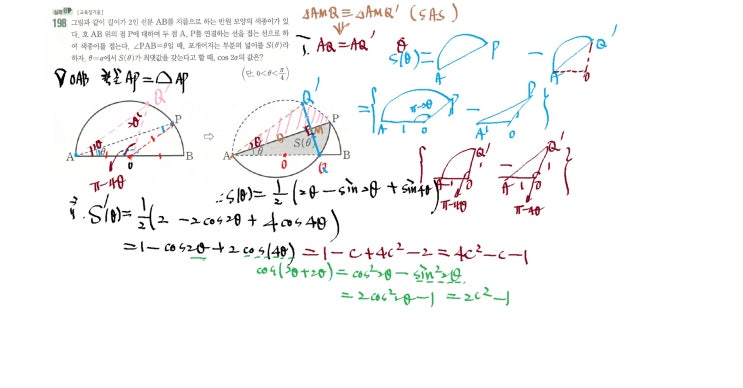 실력UP [교육청기출]
198 그림과 같이 길이가 2인 선분 AB를 지름으로 하는 반원 모양의 색종이가 있
다. 호 AB 위의 점 P에 대하여 두 점 A, P를 연결하는 선을 접는 선으로 하
여 색종이를 접는다. ∠PAB=θ일 때, 포개어지는 부분의 넓이를 S(θ)라
하자. θ=α에서 S(θ)가 최댓값을 갖는다고 할 때, cos 2α의 값은?
(단, 0<θ<π/4)
△AMQ ≡ △AMQ′ (SAS)
AQ = AQ′
S(θ)=
A
P
−
A
Q′
0
=
π-2θ
P
A 1 0
−
A 1 0
P
Q′
A 1 0
π-4θ
−
Q′
A 1 0
π-4θ
AP = AP
Q′
P
A
θ
0
B
π-4θ
⇨
Q′
P
M
A
θ
S(θ)
0
Q
B
∴S(θ)=1/2(2θ-sin2θ+sin4θ)
S′(θ)=1/2(2-2cos2θ+4cos4θ)
=1-cos2θ+2cos(4θ) = 1-c+4c²-2 = 4c²-c-1
cos(2θ+2θ)=cos²2θ-sin²2θ
=2cos²2θ-1 = 2c²-1